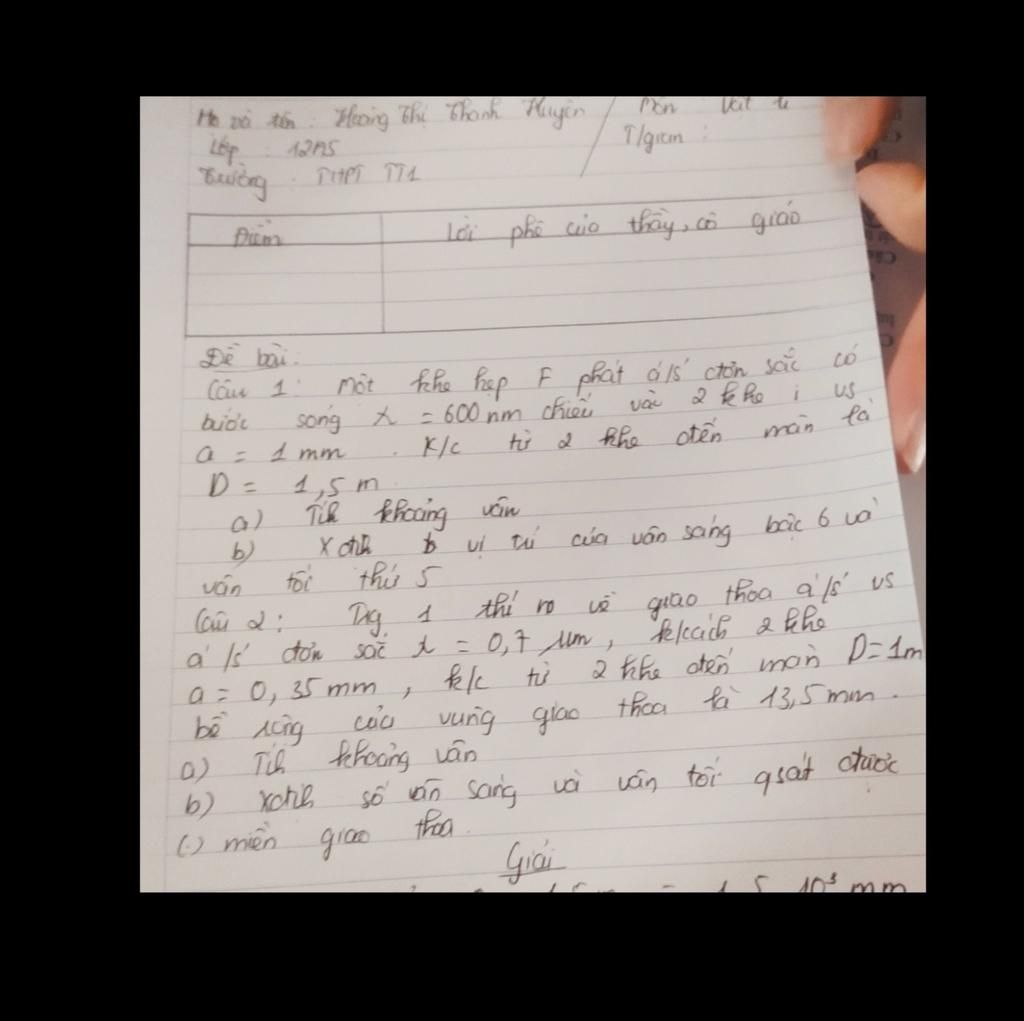 Họ và tên : Hoàng Thị Thanh Huyền / Môn : Vật lí
Lớp : 12A5 T/gian :
Trường : THPT TT1
Điểm Lời phê của thầy, cô giáo
Đề bài:
Câu 1: Một khe hẹp F phát á/s' đơn sắc có
bước sóng λ = 600 nm chiếu vào 2 khe i vs
a = 1 mm . K/c từ 2 khe đến màn là
D = 1,5 m
a) Tíh khoảng vân
b) Xđịh vị trí của vân sáng bậc 6 và
vân tối thứ 5
Câu 2: Trg 1 thí no về giao thoa á/s' vs
á/s' đơn sắc λ = 0,7 μm, k/cách 2 khe
a = 0,35 mm, k/c từ 2 khe đến màn D = 1m
bề rộng của vùng giao thoa là 13,5 mm.
a) Tíh khoảng vân
b) Xđịh số vân sáng và vân tối qsát được
(.) miền giao thoa.
Giải
10³ mm